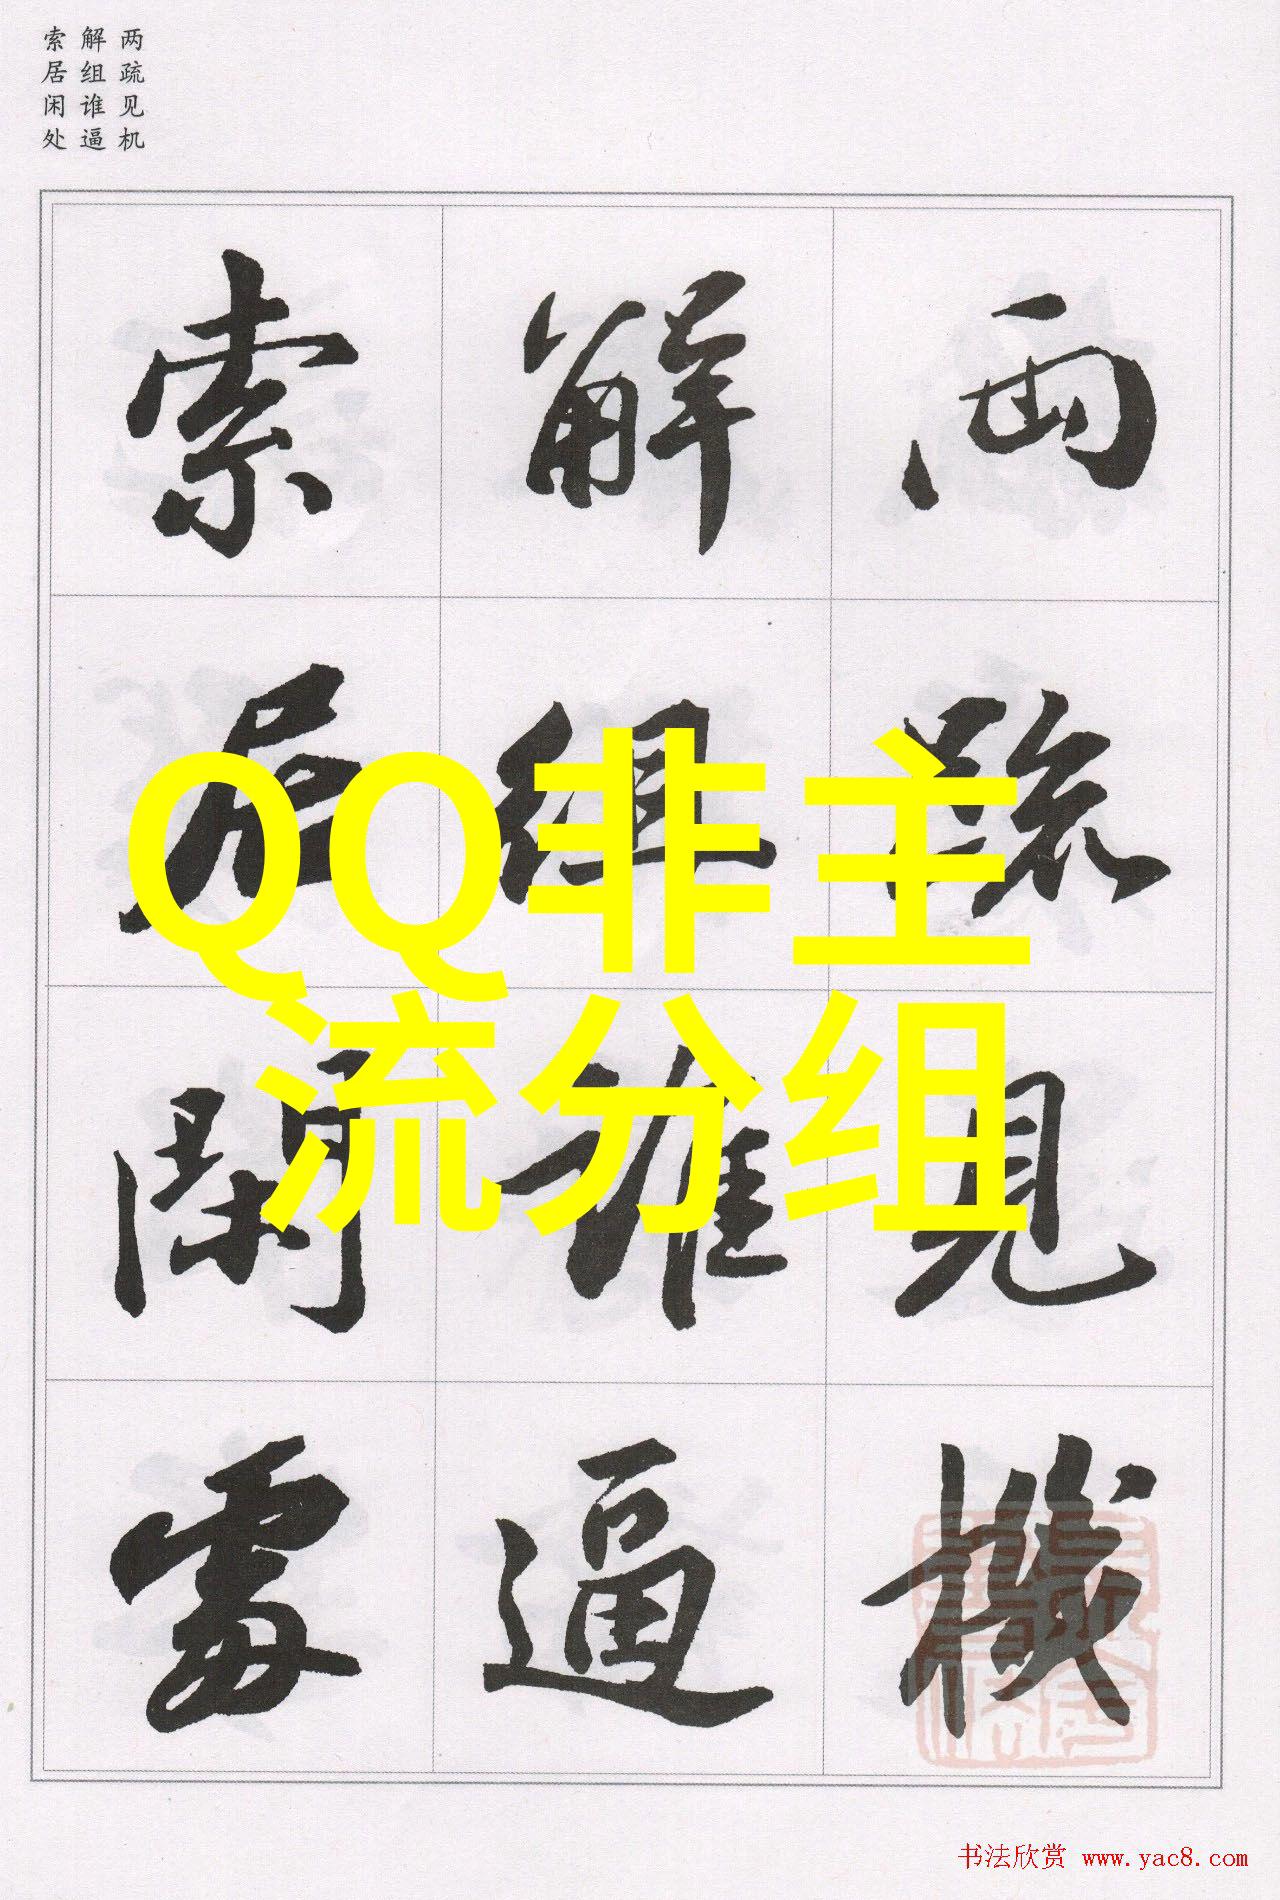 两疏见机
解组谁逼
索居闲处
兩疏見機
解組誰逼
索居閑處
QQ非主
流分组
书法欣赏 www.yac8.com